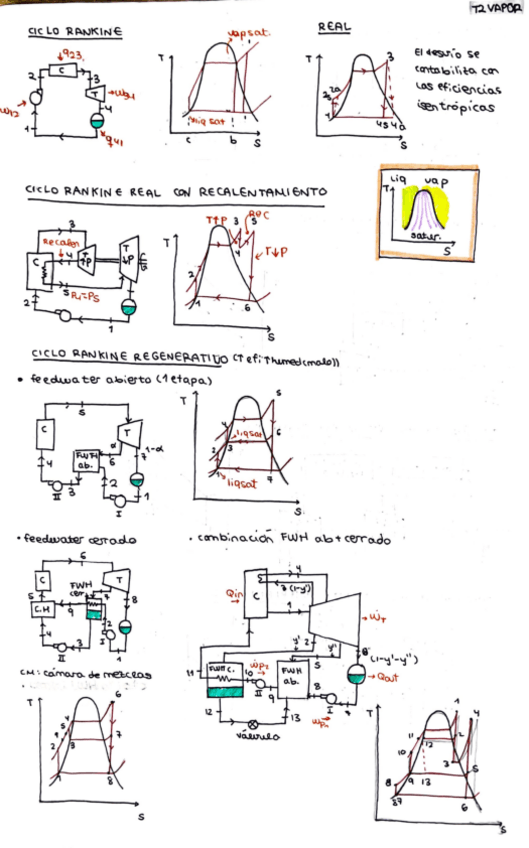 T2 VAPOR
CICLO RANKINE
REAL
q23
C
2
3
T
4
1
q41
vap sat.
T
liq sat
c
b
S
T
3
2
2a
1
4s 4a
S
El desvío se
contabilita con
las eficiencias
isentrópicas
CICLO RANKINE REAL CON RECALENTAMIENTO
3
Recalen
4
T
↑P
T
↓P
C
5 P4=P5
2
1
T
T↑P
3
5
REC
4
T↓P
2
1
6
S
liq vap
T
satur.
S
CICLO RANKINE REGENERATIVO (↑efi; ↑humed(malo))
• feedwater abierto (1 etapa)
5
C
T
α
1-α
FWH
ab.
6
7
4
3
2
II
I
1
T
5
4
liqsat
6
3
2
1
liqsat
7
S
• feedwater cerrado
• combinación FWH ab + cerrado
6
C
T
FWH
cerr
7
5
C.M
9
8
2
I
4
3
II
1
CM: cámara de mezclas
T
6
5
4
9
2
3
7
1
8
S
Qin
C
4
3 (1-y')
1
ẆT
y'
2
y''
5
6
(1-y'-y'')
Qout
11
FWH c.
10
Ẇp2
II
9
FWH
ab.
8
I
7
Ẇp1
12
13
válvula
T
1
4
11
12
2
10
3
5
9
13
8
6
S